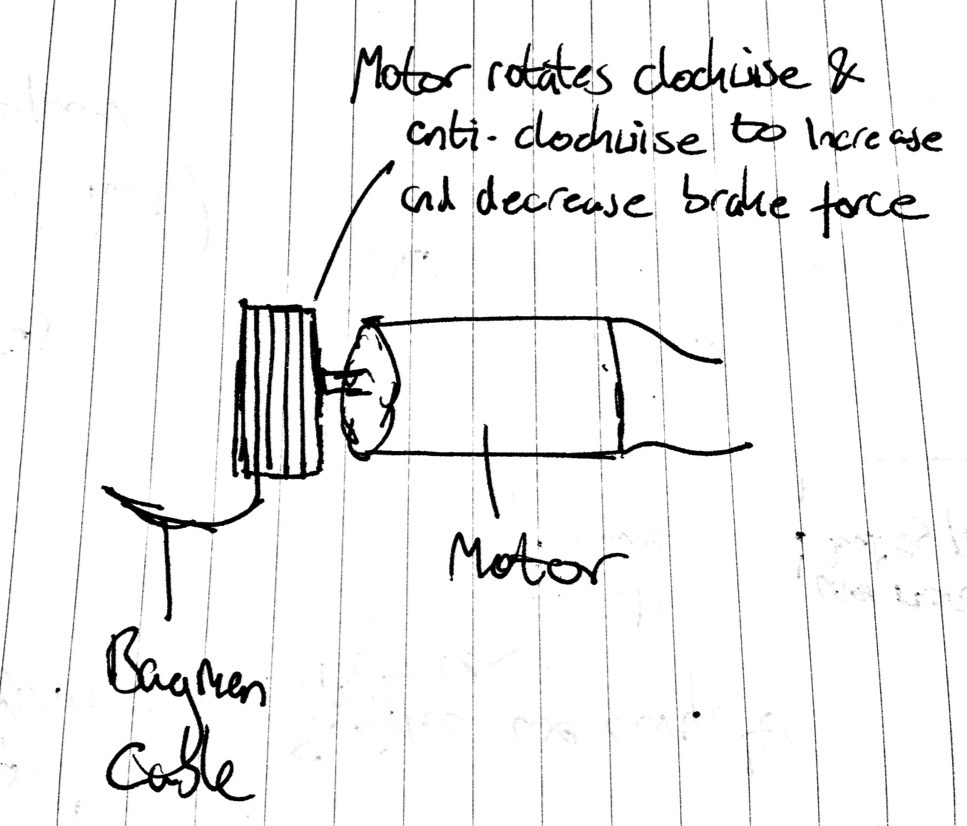 Motor rotates clockwise &
anti-clockwise to increase
and decrease brake force
Motor
Cable